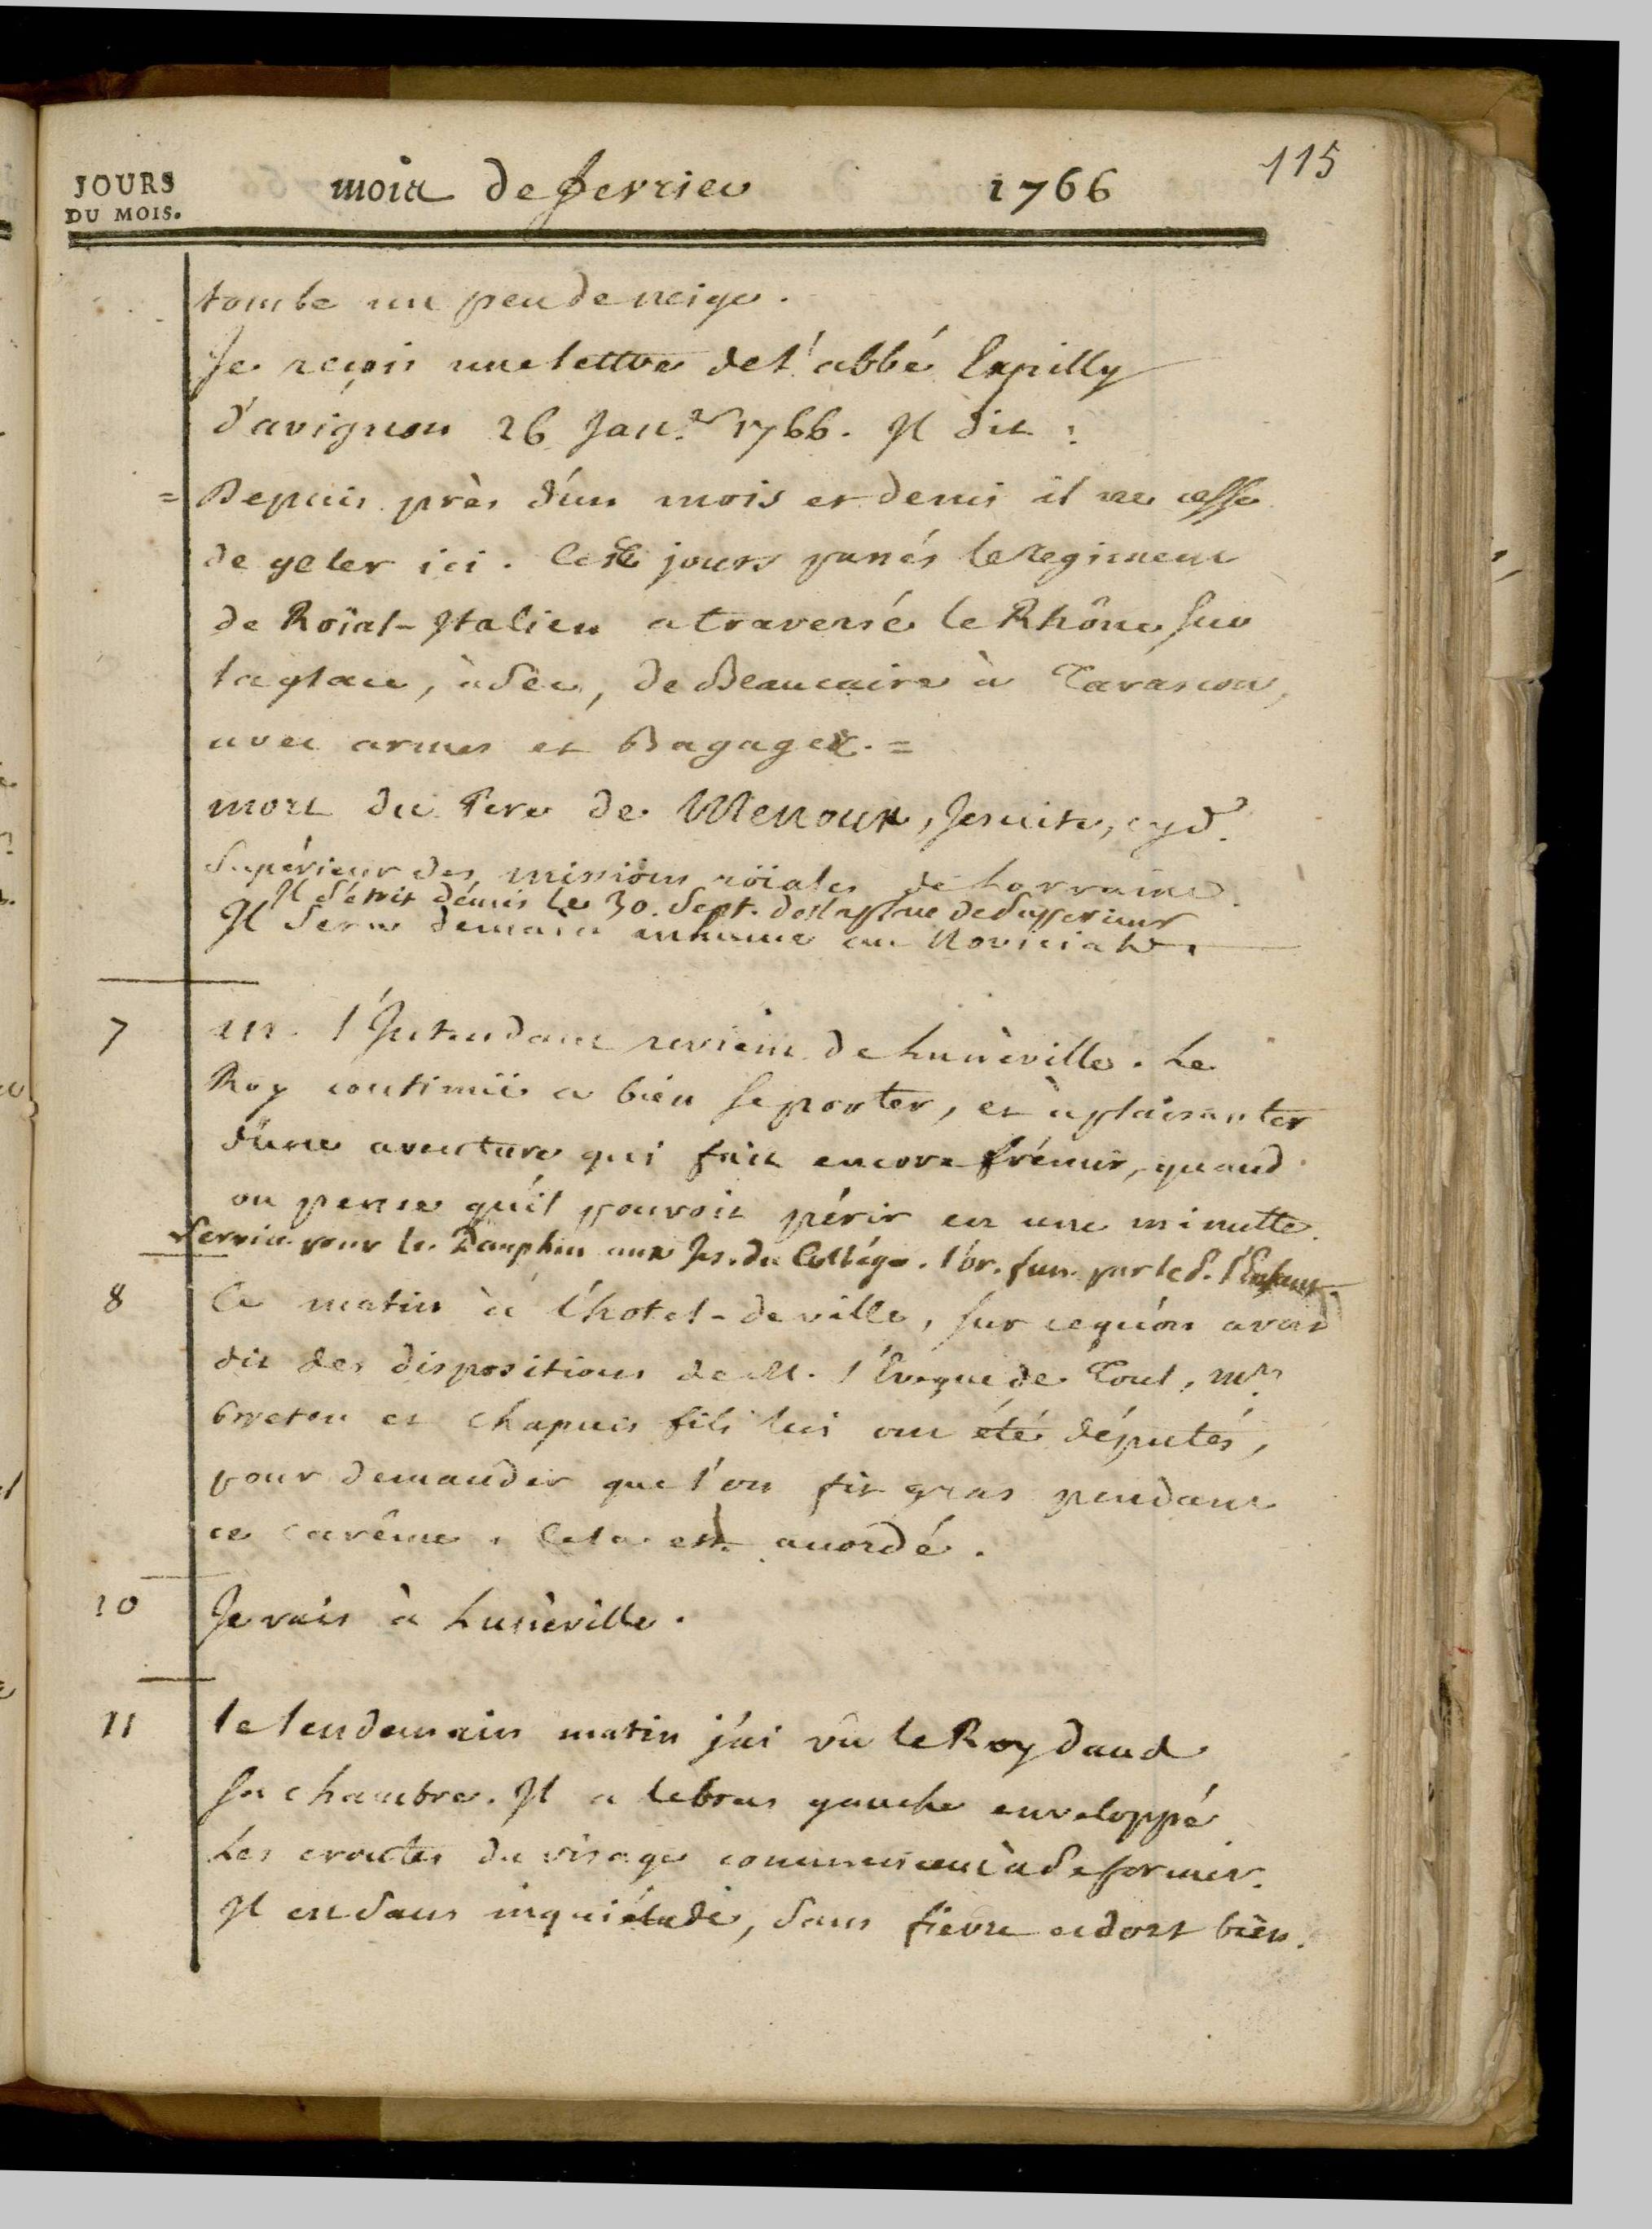 115
JOURS
DU MOIS.
mois de fevrier 1766
tombe un peu de neige.
Je reçois une lettre de l'abbé Expilly
d'avignon 26 Jan.er 1766. Il dit :
= Depuis près d'un mois et demi il ne cesse
de geler ici. Ces jours passés le regiment
de Roïal-Italien a traversé le Rhône sur
la glace, à sec, de Beaucaire à Tarascon,
avec armes et Bagages. =
mort du Pere de Menoux, Jesuite, cyd.
Supérieur des missions roïales de Lorraine.
Il s'étoit démis le 30. Sept. de la place de Superieur
Il sera demain inhumé au Noviciat.
7 M. l'Intendant revient de Lunéville. Le
Roy continüe a bien se porter, et à plaisanter
d'une aventure qui fait encore frémir, quand
on pense qu'il pouvoit périr en une minutte.
Service pour le Dauphin aux Jes. du Collége. l'or. fun. par le P. l'Enfant.
8 Ce matin à l'hotel-de ville, sur ce qu'on avoit
dit des dispositions de M. l'Eveque de Toul, Mrs
breton et chapuis fils lui ont été députés,
pour demander que l'on fit gras pendant
ce carême. Cela est accordé.
10 Je vais à Lunéville.
11 le lendemain matin j'ai vû le Roy dans
sa chambre. Il a le bras gauche enveloppé
Les croutes du visage commencent à se former.
Il est sans inquiétude, sans fievre et dort bien.